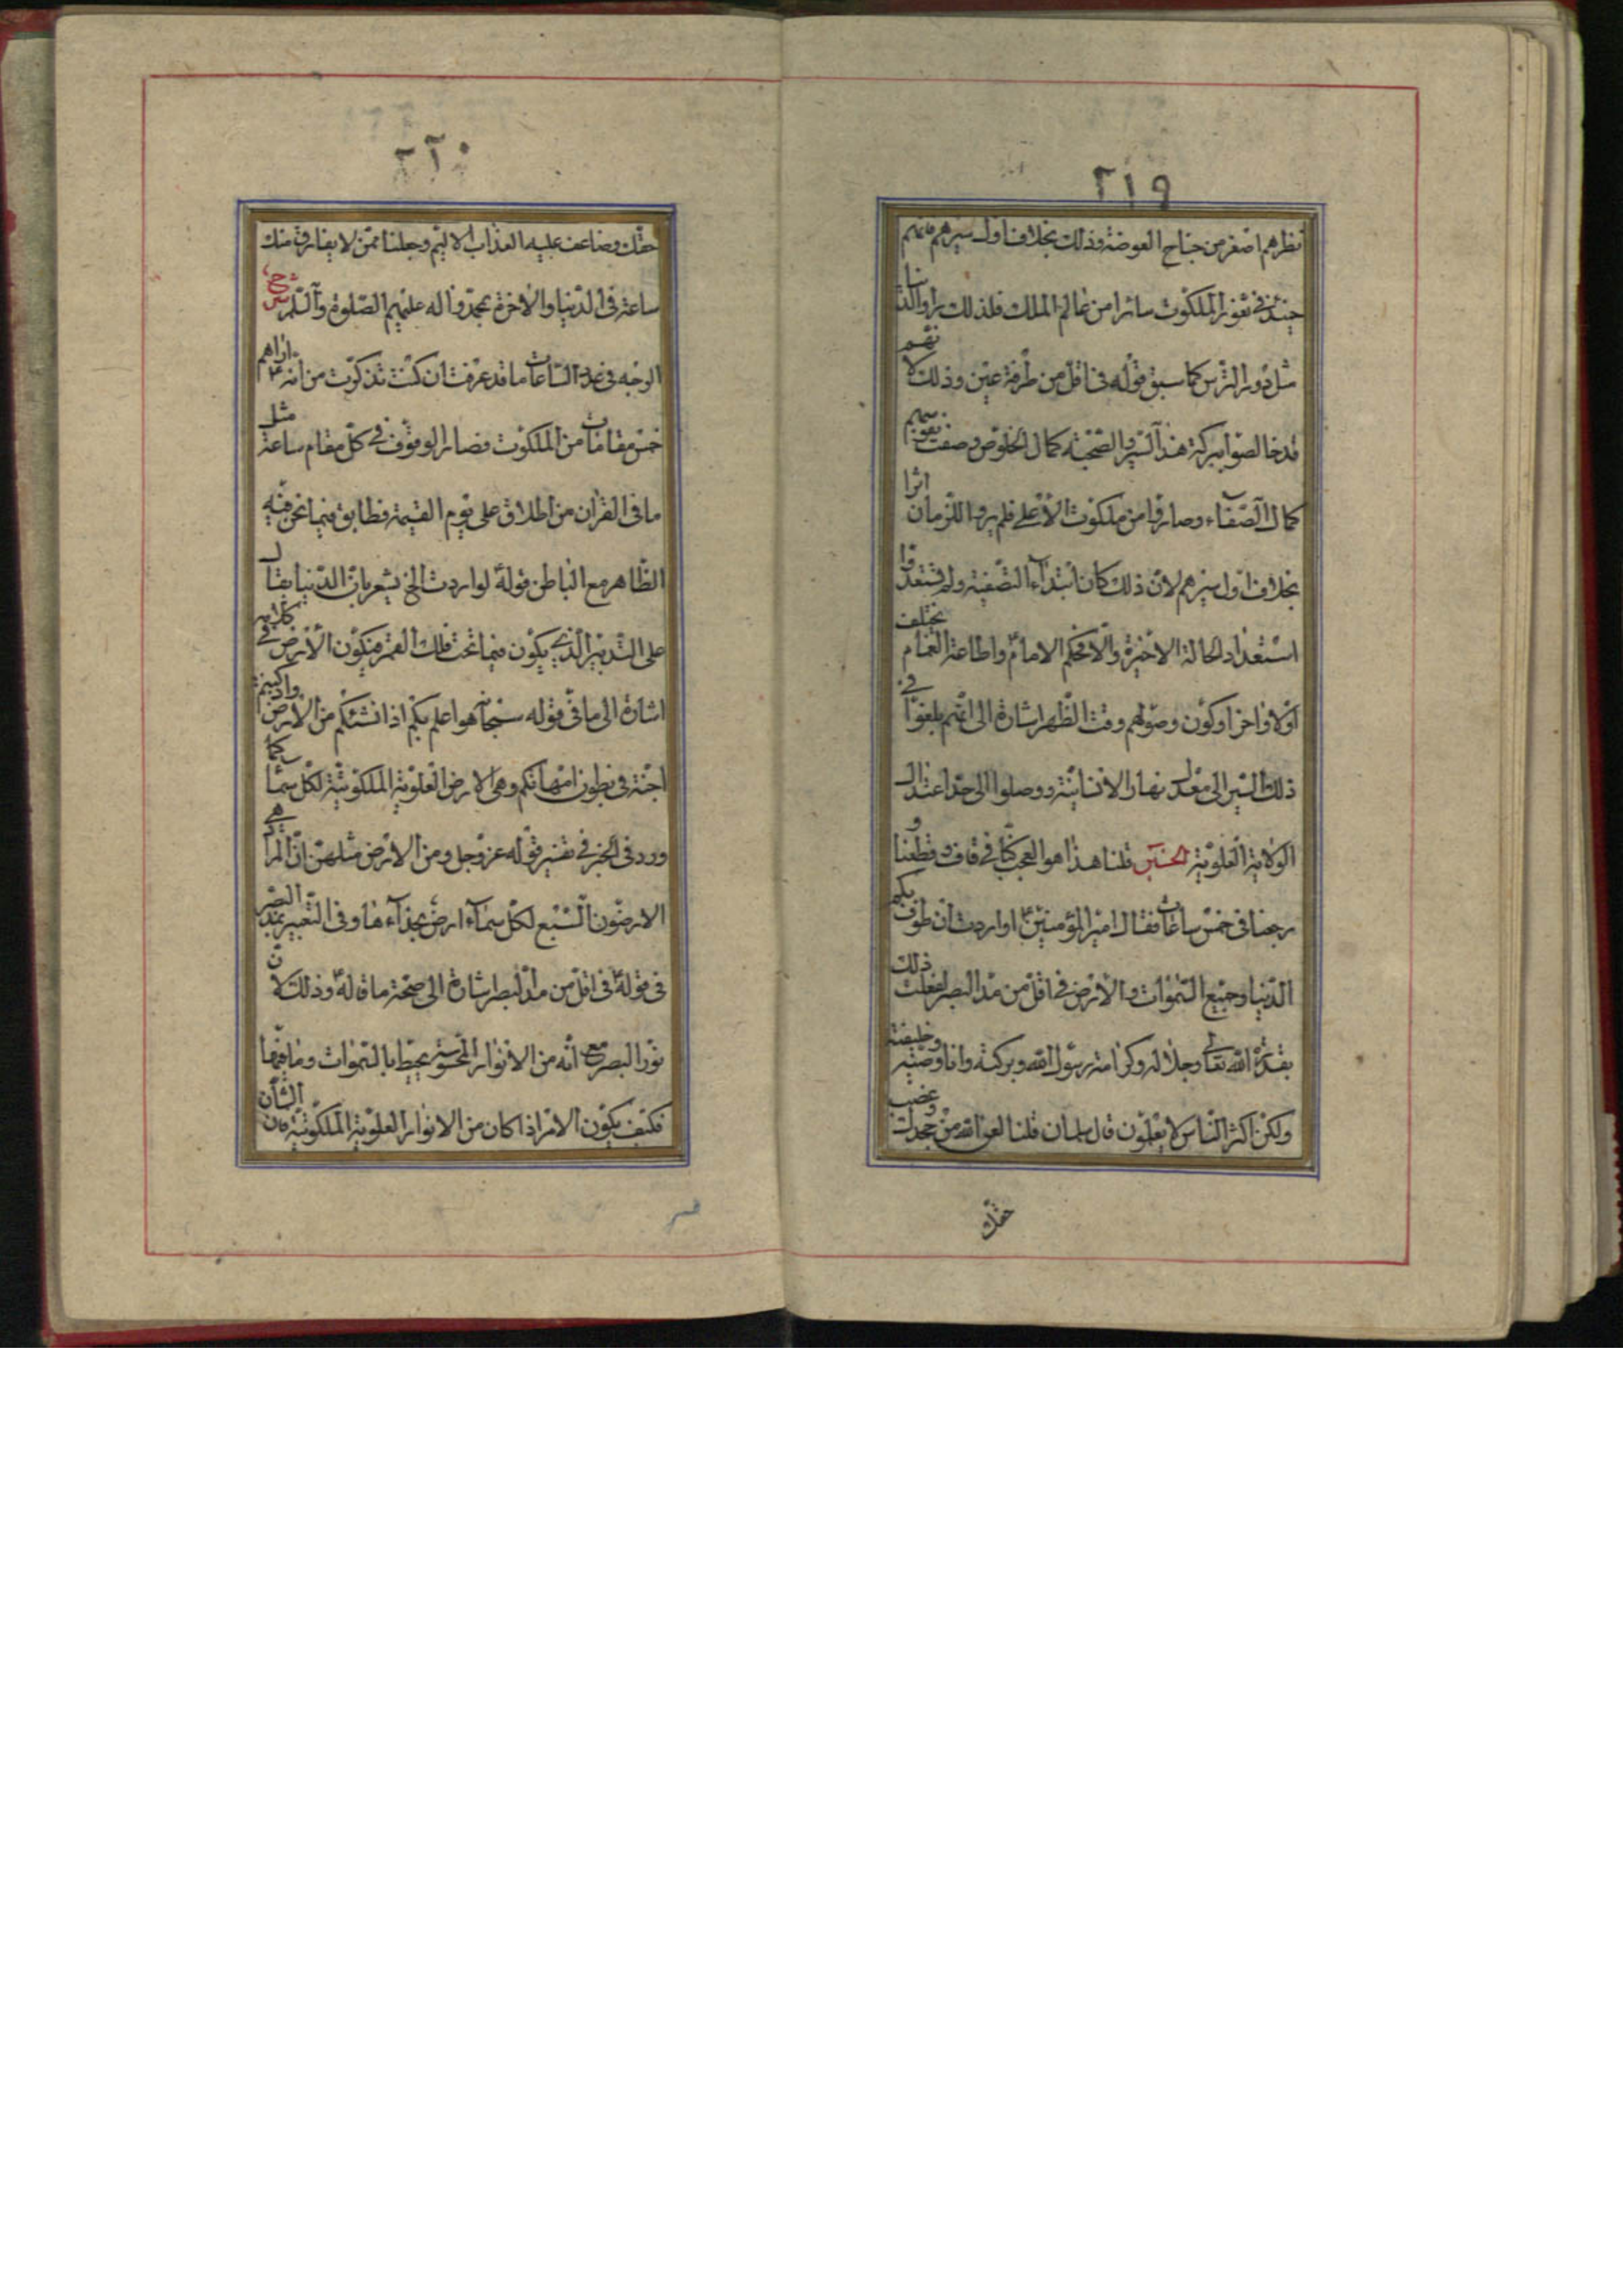 ٢١٩
نظرهم اصغر من جناح البعوضة وذلك بخلاف اول سيرهم فانهم
حينئذ في نفوذ الملكوت سائرا من عالم الملك فلذلك راوا الدنيا
مثل دور الترس كما سبق قوله في اقل من طرفة عين وذلك لانهم
قد خالصوا ببركة هذا السير والصحبة كمال الخلوص وصفت نفوسهم
كمال الصفاء وصاروا من ملكوت الاعلى فلم يروا للزمان اثرا
بخلاف اول سيرهم لان ذلك كان ابتداء التصفية ولم يستعدوا
استعداد الحالة الاخيرة والا فحكم الامام واطاعة الغمام يختلف
اولا واخرا وكون وصولهم وقت الظهر اشارة الى انهم بلغوا في
ذلك السير الى معدل نهار الانسانية ووصلوا الى حد اعتدال
الولاية العلوية الحسين قلنا هذا هو العجب كنا في قاف وقطعنا و
رجعنا في خمس ساعات فقال امير المؤمنين لو اردت ان طوف بكم
الدنيا وجميع السموات والارض في اقل من مد البصر لفعلت ذلك
بقدرة الله تعالى وجلاله وكرامة رسول الله وبركته وانا وصيه وخليفته
ولكن اكثر الناس لا يعلمون قال سلمان قلنا لعن الله من جحدك وغصب
حقك
٢٢٠
حقك وضاعف عليه العذاب الاليم وجعلنا ممن لا يفارق منك
ساعة في الدنيا والاخرة بمحمد واله عليهم الصلوة والسلم شرح
الوجه في عدد الساعات ما قد عرفت ان كنت تذكرت من انه اراهم
خمس مقامات من الملكوت فصار الوقوف في كل مقام ساعة مثل
ما في القران من اطلاق على يوم القيمة فطابق فيما نحن فيه
الظاهر مع الباطن قوله لو اردت الخ يشعر بان الدنيا يقال
على التدبير الذي يكون فيما تحت فلك القمر فيكون الارض في كلامه
اشارة الى ما في قوله سبحانه هو اعلم بكم اذ انشئكم من الارض واذ كنتم
اجنة في بطون امهاتكم وهي الارض العلوية الملكوتية لكل سما كما
ورد في الخبر في تفسير قوله عز وجل ومن الارض مثلهن ان المراد هي
الارضون السبع لكل سماء ارض بحذاء ها وفي التعبير بمد البصر
في قوله في اقل من مد البصر اشارة الى صحة ما قاله وذلك لان
نور البصر مع انه من الانوار المحسوسة يحيط بالسموات وما فيها
فكيف يكون الامر اذا كان من الانوار العلوية الملكوتية فان الشان